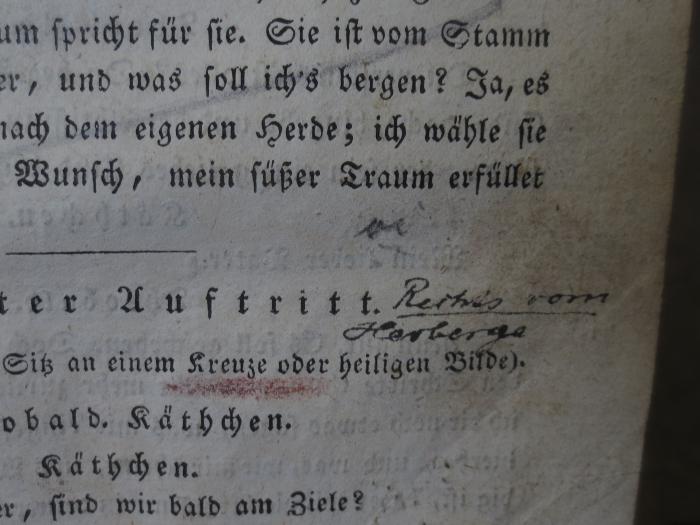 um spricht für sie. Sie ist vom Stamm
er, und was soll ich's bergen? Ja, es
nach dem eigenen Herde; ich wähle sie
Wunsch, mein süßer Traum erfüllet
ter Auftritt. Rechts vorn
Herberge
Sitz an einem Kreuze oder heiligen Bilde).
obald. Käthchen.
Käthchen.
er, sind wir bald am Ziele?